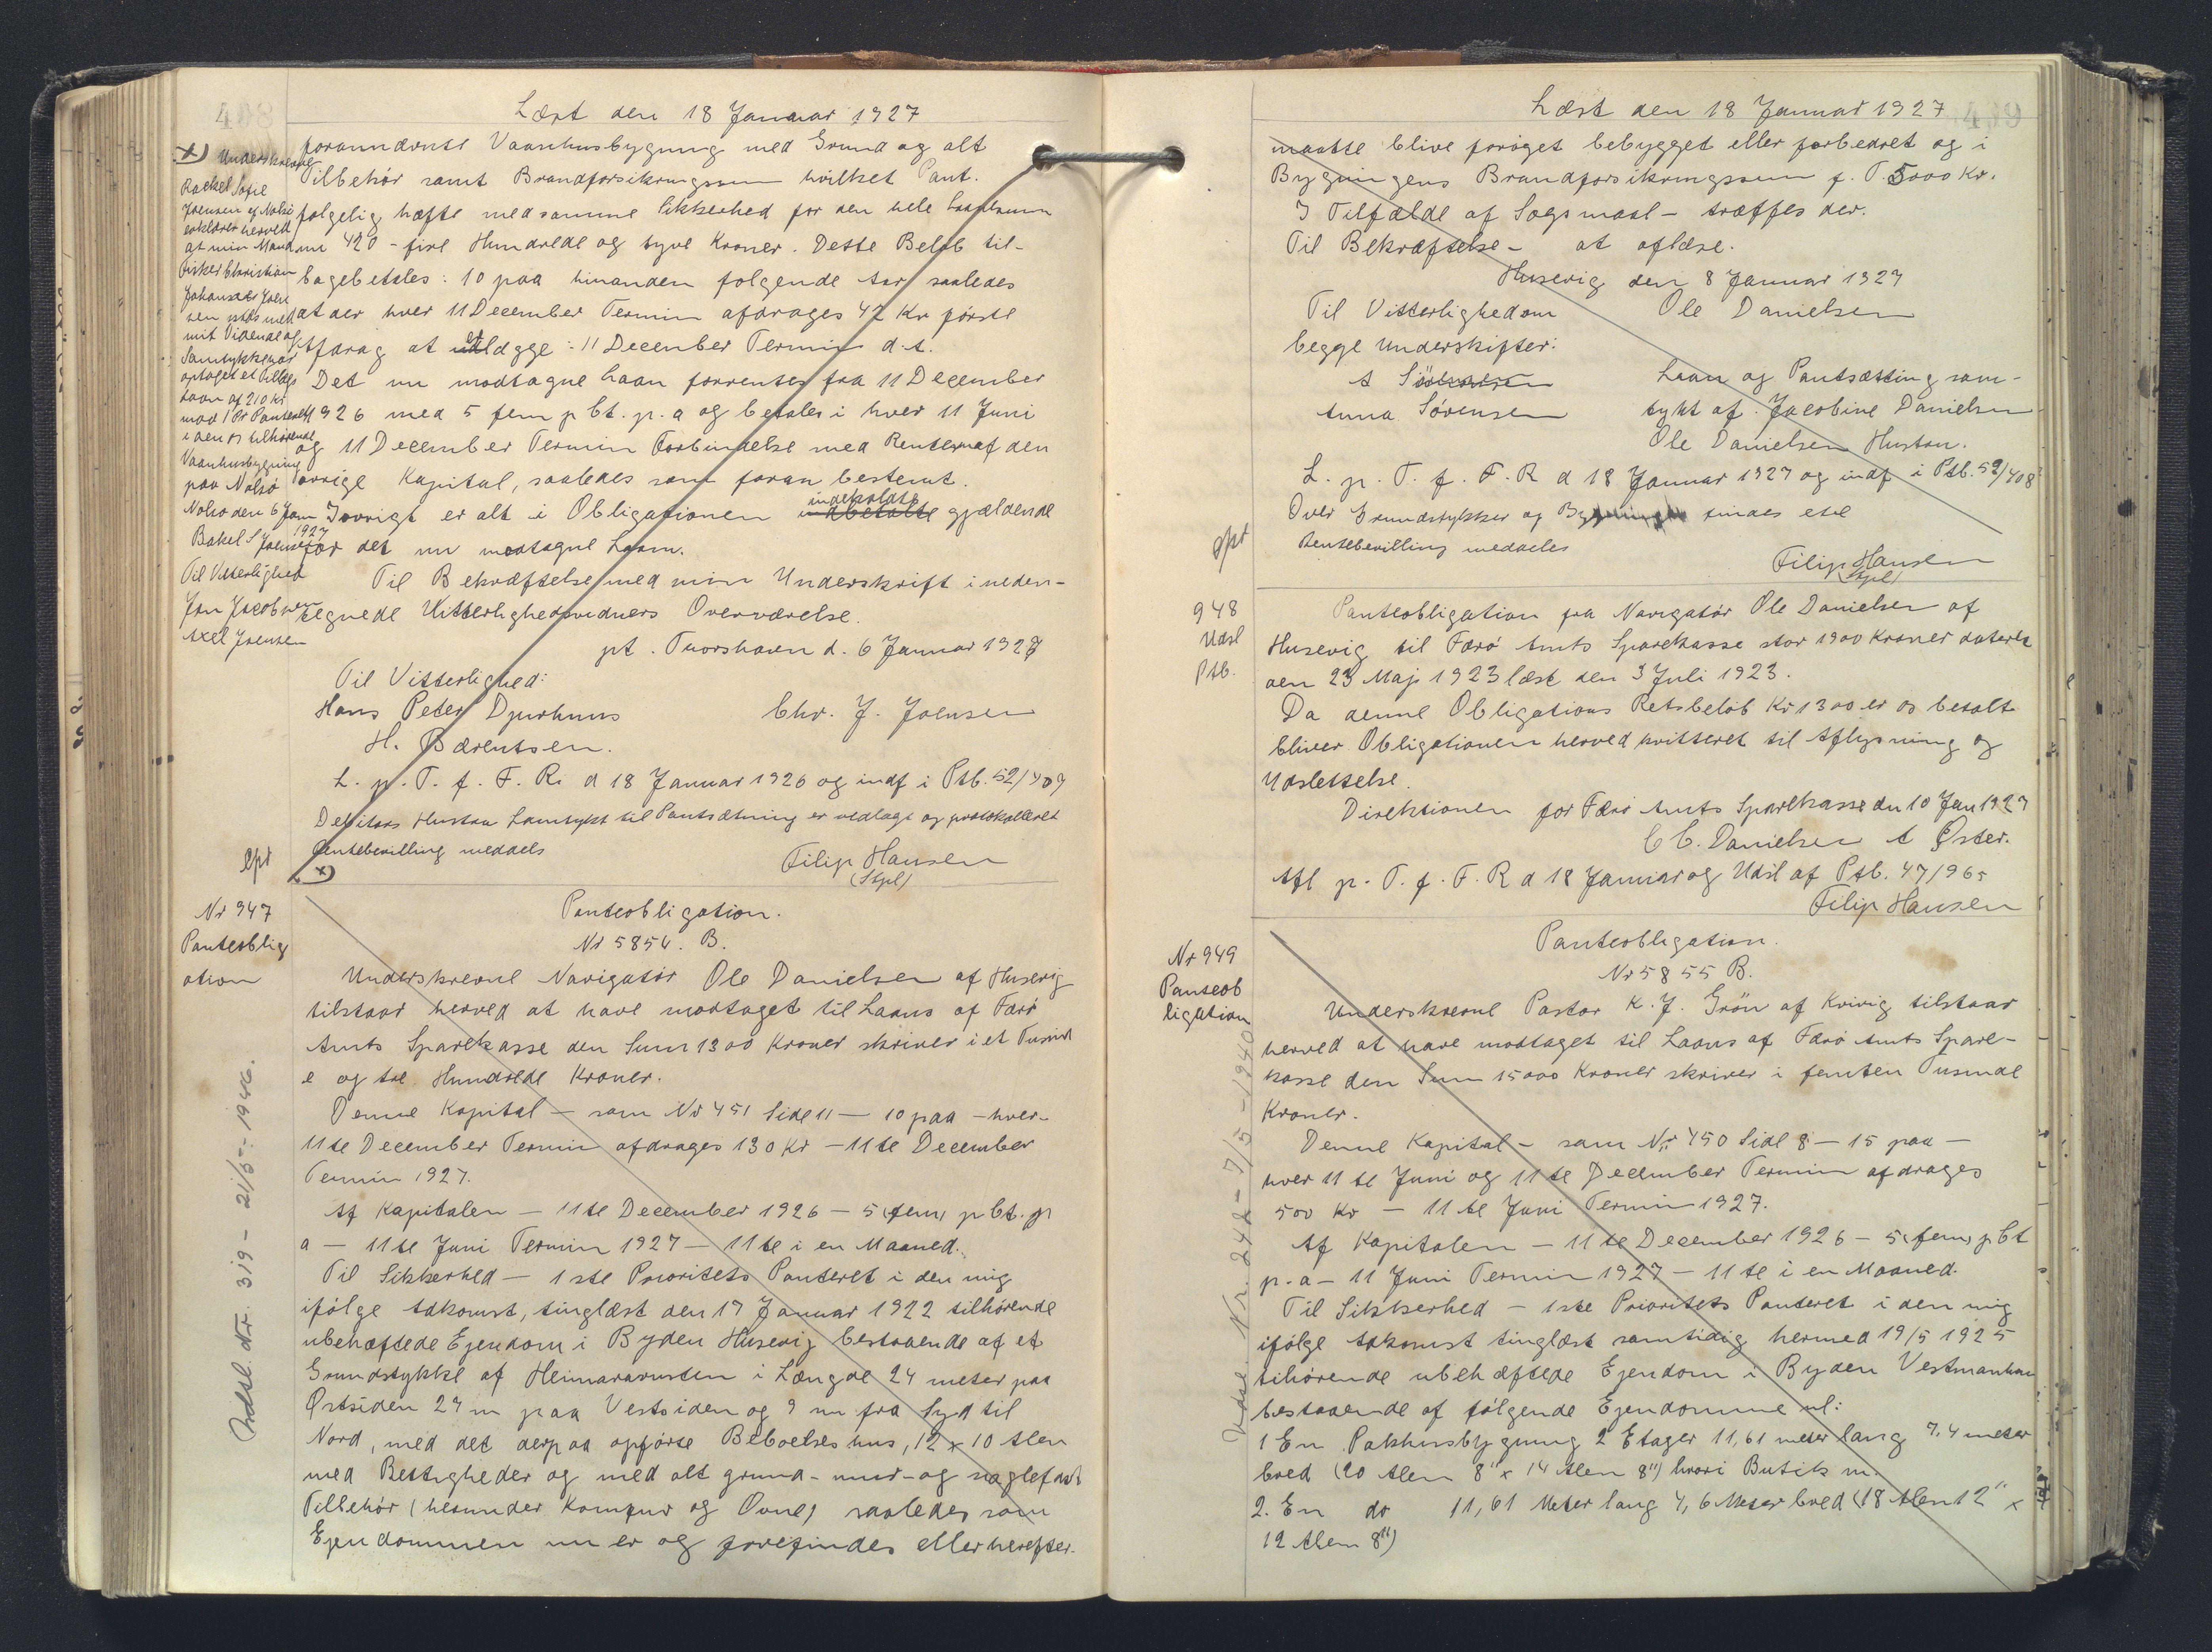 Læst den 18 Januar 1927
forannævnte Vaanhusbygning med Grund og alt
Tilbehør samt Brandforsikringssum hvilket Pant.
følgelig hæfte med samme Sikkerhed for den hele Laanesum
nu 420 - fire Hundrede og tyve Kroner. Dette Beløb til-
bagebetales: 10 paa hinanden følgende Aar saaledes
at der hver 11 December Termin afdrages 42 Kr første
Afdrag at erlægge: 11 December Termin d.A.
Det nu modtagne Laan forrentes fra 11 December
1926 med 5 fem p Ct. p. a og betales i hver 11 Juni
og 11 December Termin Forbindelse med Renterne af den
øvrige Kapital, saaledes som foran bestemt.
Iøvrigt er alt i Obligationen indeholdte gjældende
for det nu modtagne Laan.
Til Bekræftelse med min Underskrift i neden-
tegnede Vitterlighedsvidners Overværelse.
pt. Thorshavn d. 6 Januar 1927
Til Vitterlighed:
Hans Peter Djurhuus Chr. J. Joensen
H. Bærentsen.
L. p. T. f. F. R. d 18 Januar 1926 og indf i Ptb. 52/407
Debitors Hustru Samtykt til Pantsætning er vedlagt og protokolleret
Rentebevilling meddels
Filip Hansen
(Stpl)
x)
x) Underskrevne
Rackel Sofie
Joensen af Nolsø
erklærer herved
at min Mand
Fisker Christian
Johannes Joen
sen mit Vidende og
Samtykke har
optaget et Tillægs
Laan af 210 Kr
mod 1 Pr Panteret
i den os tilhørende
Vaanhusbygning
paa Nolsø
Nolsø den 6 Jan
1927
Rakel S Joensen
Til Vitterlighed
Jan Jacobsen
Axel Joensen
Nr 947
Panteoblig
ation
Udsl. Nr. 319 - 21/5 - 1946.
Panteobligation.
Nr 5854. B.
Underskrevne Navigatør Ole Danielsen af Husevig
tilstaar herved at have modtaget til Laans af Færø
Amts Sparekasse den Sum 1300 Kroner skriver i et Tusind
e og tre Hundrede Kroner.
Denne Kapital - som Nr 451 Side 11 - 10 paa - hver-
11te December Termin afdrages 130 Kr - 11te December
Termin 1927.
Af Kapitalen - 11te December 1926 - 5 (fem) p Ct. p
a - 11te Juni Termin 1927 - 11te i en Maaned.
Til Sikkerhed - 1ste Prioritets Panteret i den mig
ifølge Adkomst, tinglæst den 17 Januar 1922 tilhørende
ubehæftede Ejendom i Byden Husevig bestaaende af et
Grundstykke af Heimaravusten i Længde 24 meter paa
Østsiden 27 m paa Vestsiden og 9 m fra Syd til
Nord, med det derpaa opførte Beboelseshus, 12 x 10 Alen
med Rettigheder og med alt grund- mur- og naglefast
Tilbehør (herunder Komfur og Ovne) saaledes som
Ejendommen nu er og forefindes eller herefter-
Læst den 18 Januar 1927
maatte blive forøget bebygget eller forbedret og i
Bygningens Brandforsikringssum f. T. 5000 Kr.
I Tilfælde af Søgsmaal - træffes der.
Til Bekræftelse - at aflæse.
Husevig den 8 Januar 1927
Til Vitterlighed om Ole Danielsen
begge Underskrifter:
A Laan og Pantsætting sam-
Anna Sørensen tykt af. Jacobine Danielsen
Ole Danielsen Hustru.
L. p. T. f. F. R d 18 Januar 1927 og indf i Ptb. 52/408
Over Grundstykker og Bygningen findes
Rentebevilling meddeles
Filip Hansen
(Stpl)
948
Udsl
Ptb.
Panteobligation fra Navigatør Ole Danielsen af
Husevig til Færø Amts Sparekasse stor 1900 Kroner dateret
den 23 Maj 1923 læst den 3 Juli 1923.
Da denne Obligations Restbeløb Kr 1300 er os betalt
bliver Obligationen herved kvitteret til Aflysning og
Udslettelse.
Direktionen for Færø Amts Sparekasse den 10 Jan 1927
C C. Danielsen A Øster.
Afl p. T. f. F. R d 18 Januar og Udsl af Ptb. 47/965
Filip Hansen
Nr 949
Panteob
ligation
Udsl. Nr. 242 - 7/5 - 1940
Panteobligation.
Nr 5855 B.
Underskrevne Pastor K. J. Grøn af Kvivig tilstaar
herved at have modtaget til Laans af Færø Amts Spare-
kasse den Sum 15000 Kroner skriver i femten Tusinde
Kroner.
Denne Kapital - som Nr 450 Side 8 - 15 paa -
hver 11te Juni og 11te December Termin afdrages
500 Kr - 11te Juni Termin 1927.
Af Kapitalen - 11te December 1926 - 5 (fem) p Ct
p. a - 11 Juni Termin 1927 - 11te i en Maaned.
Til Sikkerhed - 1ste Prioritets Panteret i den mig
ifølge Adkomst tinglæst samtidig hermed 19/5 1925
tilhørende ubehæftede Ejendom i Byden Vestmanhavn
bestaaende af følgende Ejendomme nl:
1 En Pakhusbygning 2 Etager 11,61 meter lang 7,4 meter
bred (20 Alen 8" x 14 Alen 8") hvori Butik m.
2. En do 11,61 Meter lang 4,6 Meter bred (18 Alen 12" x
12 Alen 8")